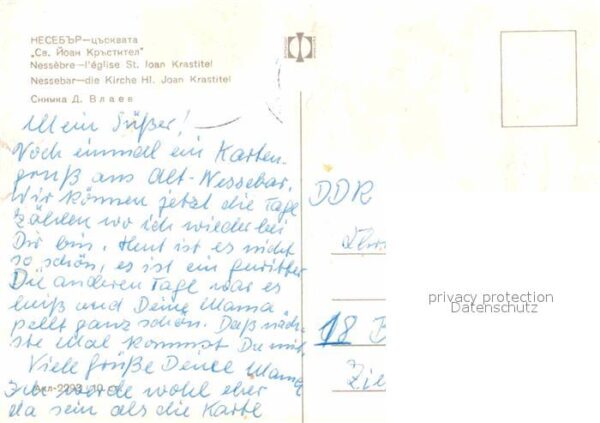 НЕСЕБЪР—църквата
„Св. Йоан Кръстител"
Nessèbre—l'église St. Joan Krastitel
Nessebar—die Kirche Hl. Joan Krastitel
Снимка Д. Влаев
Mein Süßer! —
Noch einmal ein Karten-
gruß aus Alt-Nessebar.
Wir können jetzt die Tage
zählen wo ich wieder bei
Dir bin. Heut ist es nicht
so schön, es ist ein Gewitter
Die anderen Tage war es
heiß und Deine Mama
pellt ganz schön. Das näch-
ste Mal kommst Du mit.
Viele Grüße Deine Mama
Ich werde wohl eher
da sein als die Karte
DDR
18 B
Zie
privacy protection
Datenschutz